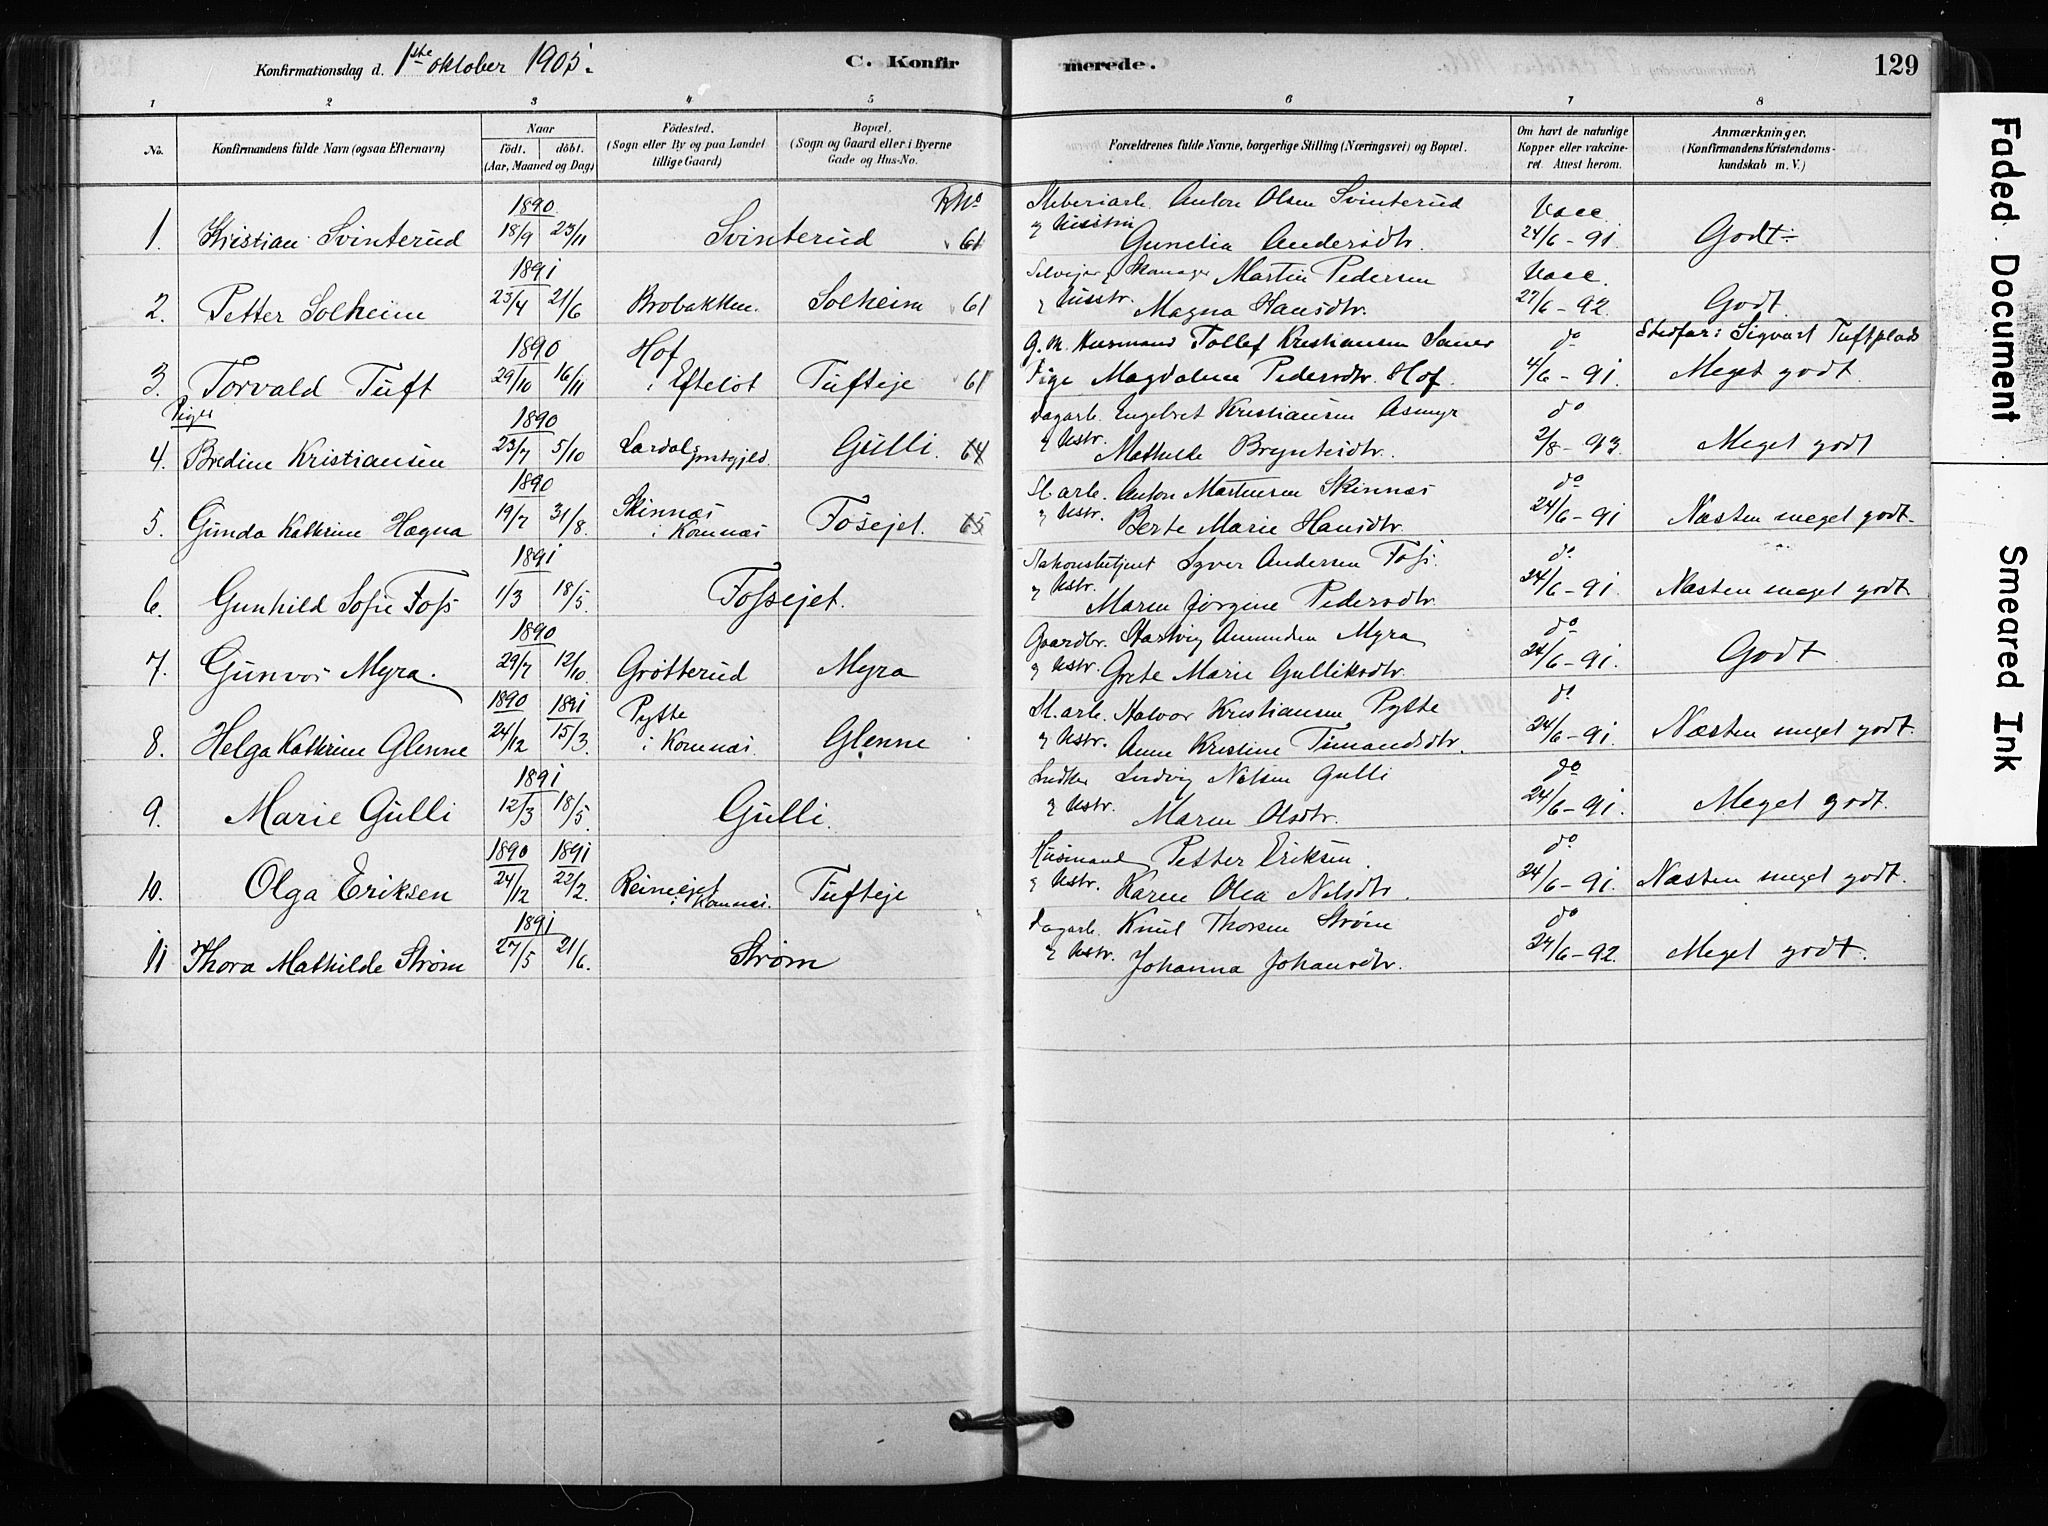 Konfirmationsdag d. 1ste oktober 1905.
C. Konfir merede. 129
1 2 3 4 5 6 7 8
No. Konfirmandens fulde Navn (ogsaa Efternavn) Naar födt. döbt. (Aar, Maaned og Dag) Födested. (Sogn eller By og paa Landet tillige Gaard) Bopæl. (Sogn og Gaard eller i Byerne Gade og Hus-No. Forældrenes fulde Navne, borgerlige Stilling (Næringsvei) og Bopæl. Om havt de naturlige Kopper eller vakcineret. Attest herom. Anmærkninger. (Konfirmandens Kristendomskundskab m. V.)
1890 Anton Olsen Svinterud Vacc.
1. Kristian Svinterud 18/9 23/11 Svinterud 61 Gunelia Andersdtr. 24/6 - 91 Godt
1891 Selvejer & Skomager Martin Pedersen Vacc.
2. Petter Solheim 23/4 21/6 Brobakken. Solheim 61 & Hustr. Magna Hansdtr. 27/6 - 92 Godt
1890 Hof G. M. Husmand Tollef Kristiansen do Stedfar: Sigvart Tuftplads
3. Torvald Tuft 29/10 16/11 i Efteløt Tufteje 61 Pige Magdalene Pedersdtr. Hof. 4/6 - 91. Meget godt
Piger
1890 Dagarb. Engebret Kristiansen Asmyr do
4. Bredine Kristiansen 23/7 5/10 Lardal prstgjeld. Gulli. 64 & Hustr. Mathilde Bryntesdtr. 2/8 - 93. Meget godt
1890 Skinnæs Anton Martinsen Skinnæs do
5. Gunda Kathrine Hagna 19/7 31/8. i Komnæs Fosejet. 65 & Hustr. Berte Marie Hansdtr. 24/6 - 91 Næsten meget godt.
1891 Syver Andersen Foss. do
6. Gunhild Sofie Foss 1/3 18/5. Fossejet. & Hustr. Maren Jörgine Pedersdtr. 24/6 - 91. Næsten meget godt
1890 Gaardbr. Hartvig Amunden Myra do
7. Gunvor Myra. 29/7 12/10. Grötterud Myra & Hustr. Grete Marie Gulliksdtr. 24/6 - 91. Godt
1890 1891 Pytte Halvor Kristiansen Pytte do
8. Helga Kathrine Glenne 24/12 15/3. i Komnæs. Glenne & Hustr. Anne Kristine Timandsdtr. 24/6 - 91. Næsten meget godt.
1891 Ludvig Nelsen Gulli do
9. Marie Gulli 12/3 18/5. Gulli. & Hustr. Maren Olsdtr. 24/6 - 91. Meget godt.
1890 1891 Husmand Petter Eriksen. do
10. Olga Eriksen 24/12 22/2. i Komnæs. Tufteje & Hustr. Karen Olea Nelsdtr. 24/6 - 91. Næsten meget godt.
1891 Dagarb. Knut Thorsen Strøm do
11 Thora Mathilde Strøm 27/5 21/6. Strøm & Hustr. Johanna Johansdtr. 27/6 - 92. Meget godt.
Faded Document
Smeared Ink